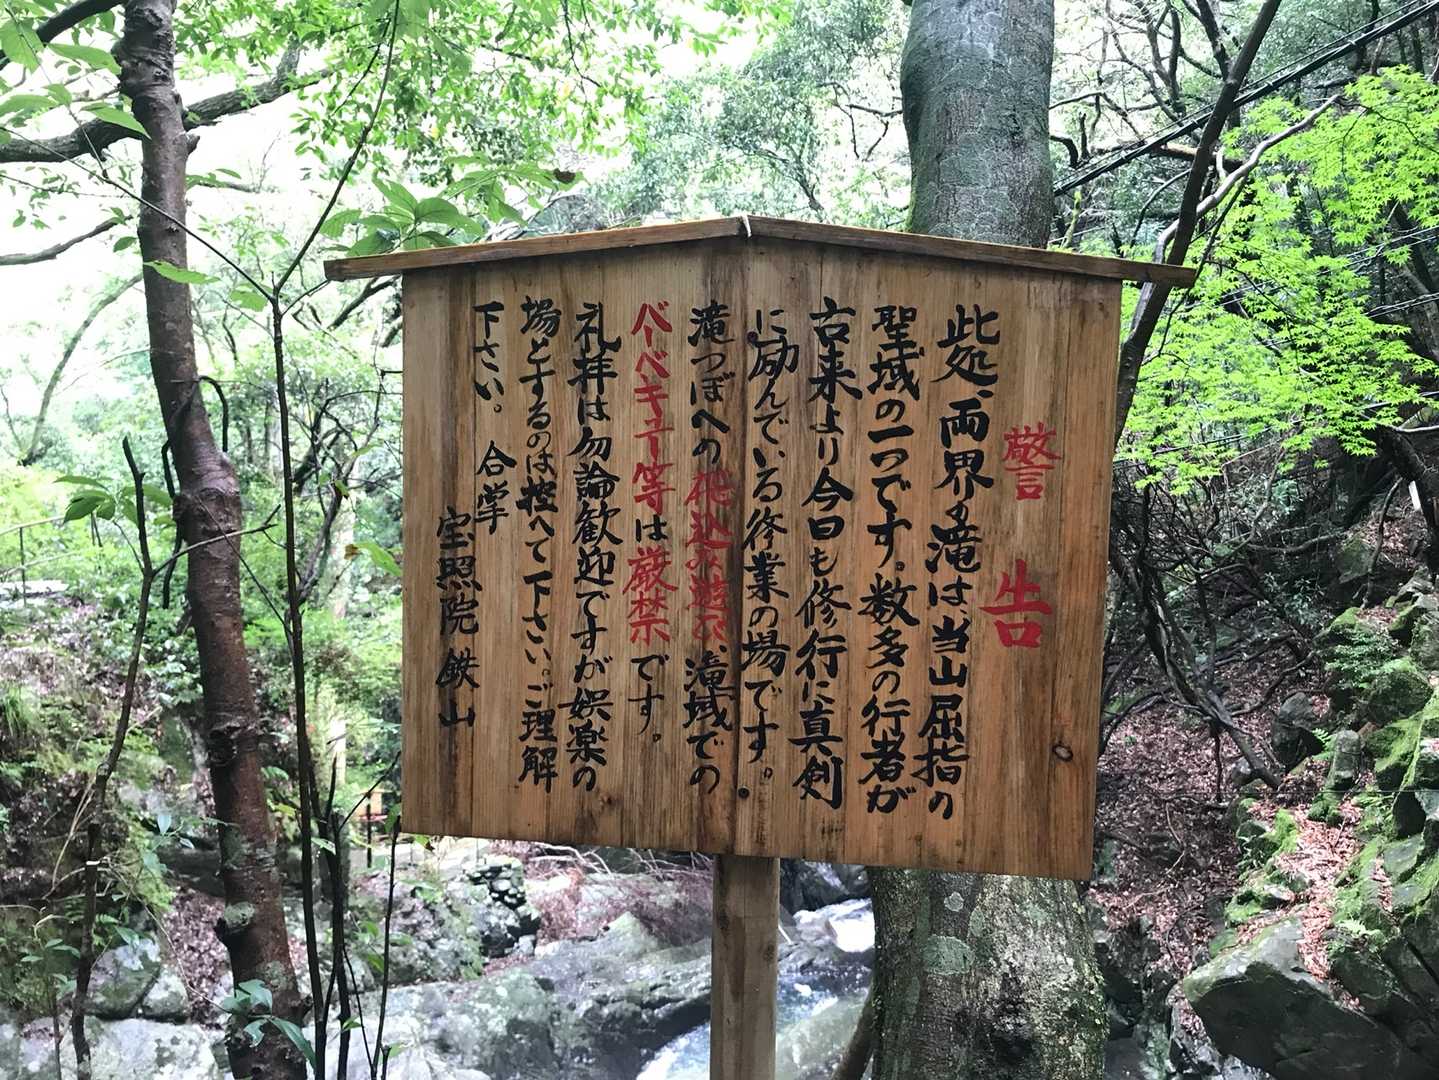 警告
此処、両界の滝は、当山屈指の
聖域の一つです。数多の行者が
古来より今日も修行に真剣
に励んでいる修業の場です。
滝つぼへの飛込み遊び、滝域での
バーベキュー等は厳禁です。
礼拝は勿論歓迎ですが娯楽の
場とするのは控へて下さい。ご理解
下さい。合掌
宝照院 鉄山